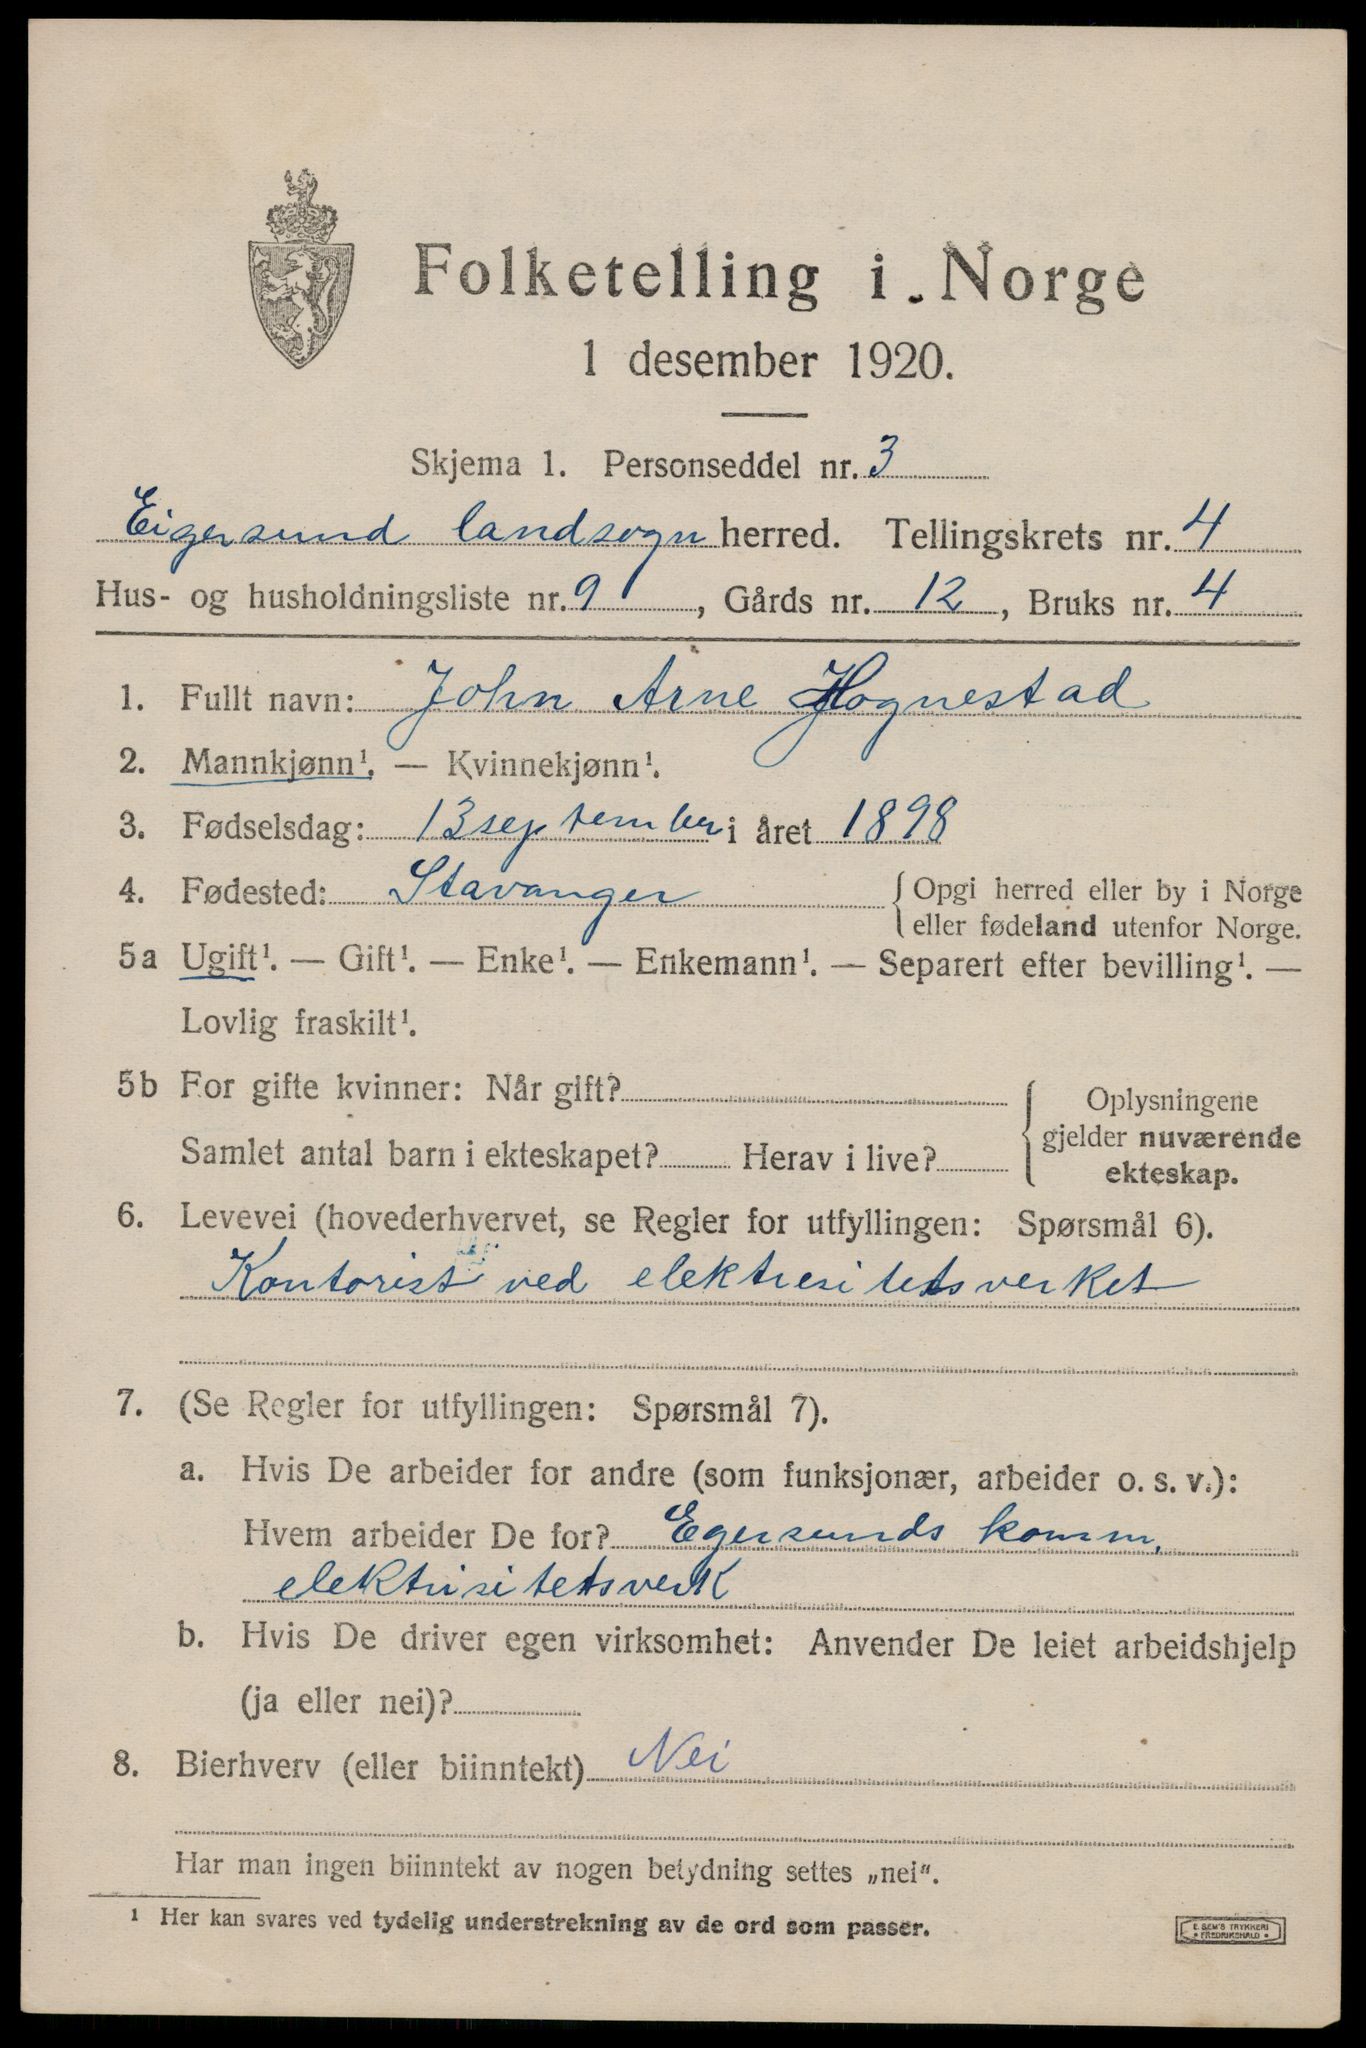 Folketelling i Norge
1 desember 1920.
Skjema 1. Personseddel nr. 3
Eigersund landsogn herred. Tellingskrets nr. 4
Hus- og husholdningsliste nr. 9, Gårds nr. 12, Bruks nr. 4
1. Fullt navn: John Arne Hognestad
2. Mannkjønn¹. — Kvinnekjønn¹.
3. Fødselsdag: 13 september i året 1898
4. Fødested: Stavanger { Opgi herred eller by i Norge
eller fødeland utenfor Norge.
5a Ugift¹. — Gift¹. — Enke¹. — Enkemann¹. — Separert efter bevilling¹. —
Lovlig fraskilt¹.
5b For gifte kvinner: Når gift?
Samlet antal barn i ekteskapet? Herav i live?
Oplysningene
gjelder nuværende
ekteskap.
6. Levevei (hovederhvervet, se Regler for utfyllingen: Spørsmål 6).
Kontorist ved elektresitetsverket
7. (Se Regler for utfyllingen: Spørsmål 7).
a. Hvis De arbeider for andre (som funksjonær, arbeider o. s. v.):
Hvem arbeider De for? Egersunds komm.
elektrisitetsverk
b. Hvis De driver egen virksomhet: Anvender De leiet arbeidshjelp
(ja eller nei)?
8. Bierhverv (eller biinntekt) Nei
Har man ingen biinntekt av nogen betydning settes „nei".
¹ Her kan svares ved tydelig understrekning av de ord som passer.
E. SEM'S TRYKKERI
• FREDRIKSHALD •